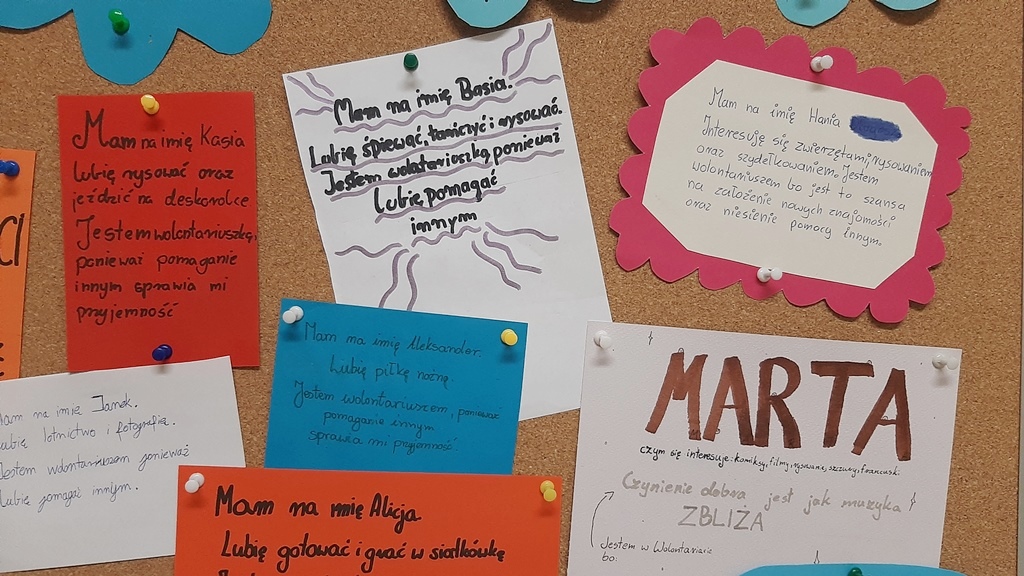 Mam na imię Kasia
Lubię rysować oraz
jeździć na deskorolce
Jestem wolontariuszką,
ponieważ pomaganie
innym sprawia mi
przyjemność
Mam na imię Basia.
Lubię śpiewać, tańczyć i rysować.
Jestem wolotariuszką, ponieważ
Lubię pomagać
innym
Mam na imię Hania
Interesuję się zwierzętami, rysowaniem
oraz szydełkowaniem. Jestem
wolontariuszem bo jest to szansa
na założenie nowych znajomości
oraz niesienie pomocy innym.
CI
Mam na imię Janek.
Lubię lotnictwo i fotografię.
Jestem wolontariuszem ponieważ
Lubię pomagać innym.
Mam na imię Aleksander.
Lubię piłkę nożną.
Jestem wolontariuszem, ponieważ
pomaganie innym
sprawia mi przyjemność.
Mam na imię Alicja
Lubię gotować i grać w siatkówkę
MARTA
czym się interesuje: komiksy, filmy, rysowanie, szczury, francuski
Czynienie dobra jest jak muzyka
ZBLIŻA
Jestem w Wolontariacie
bo: